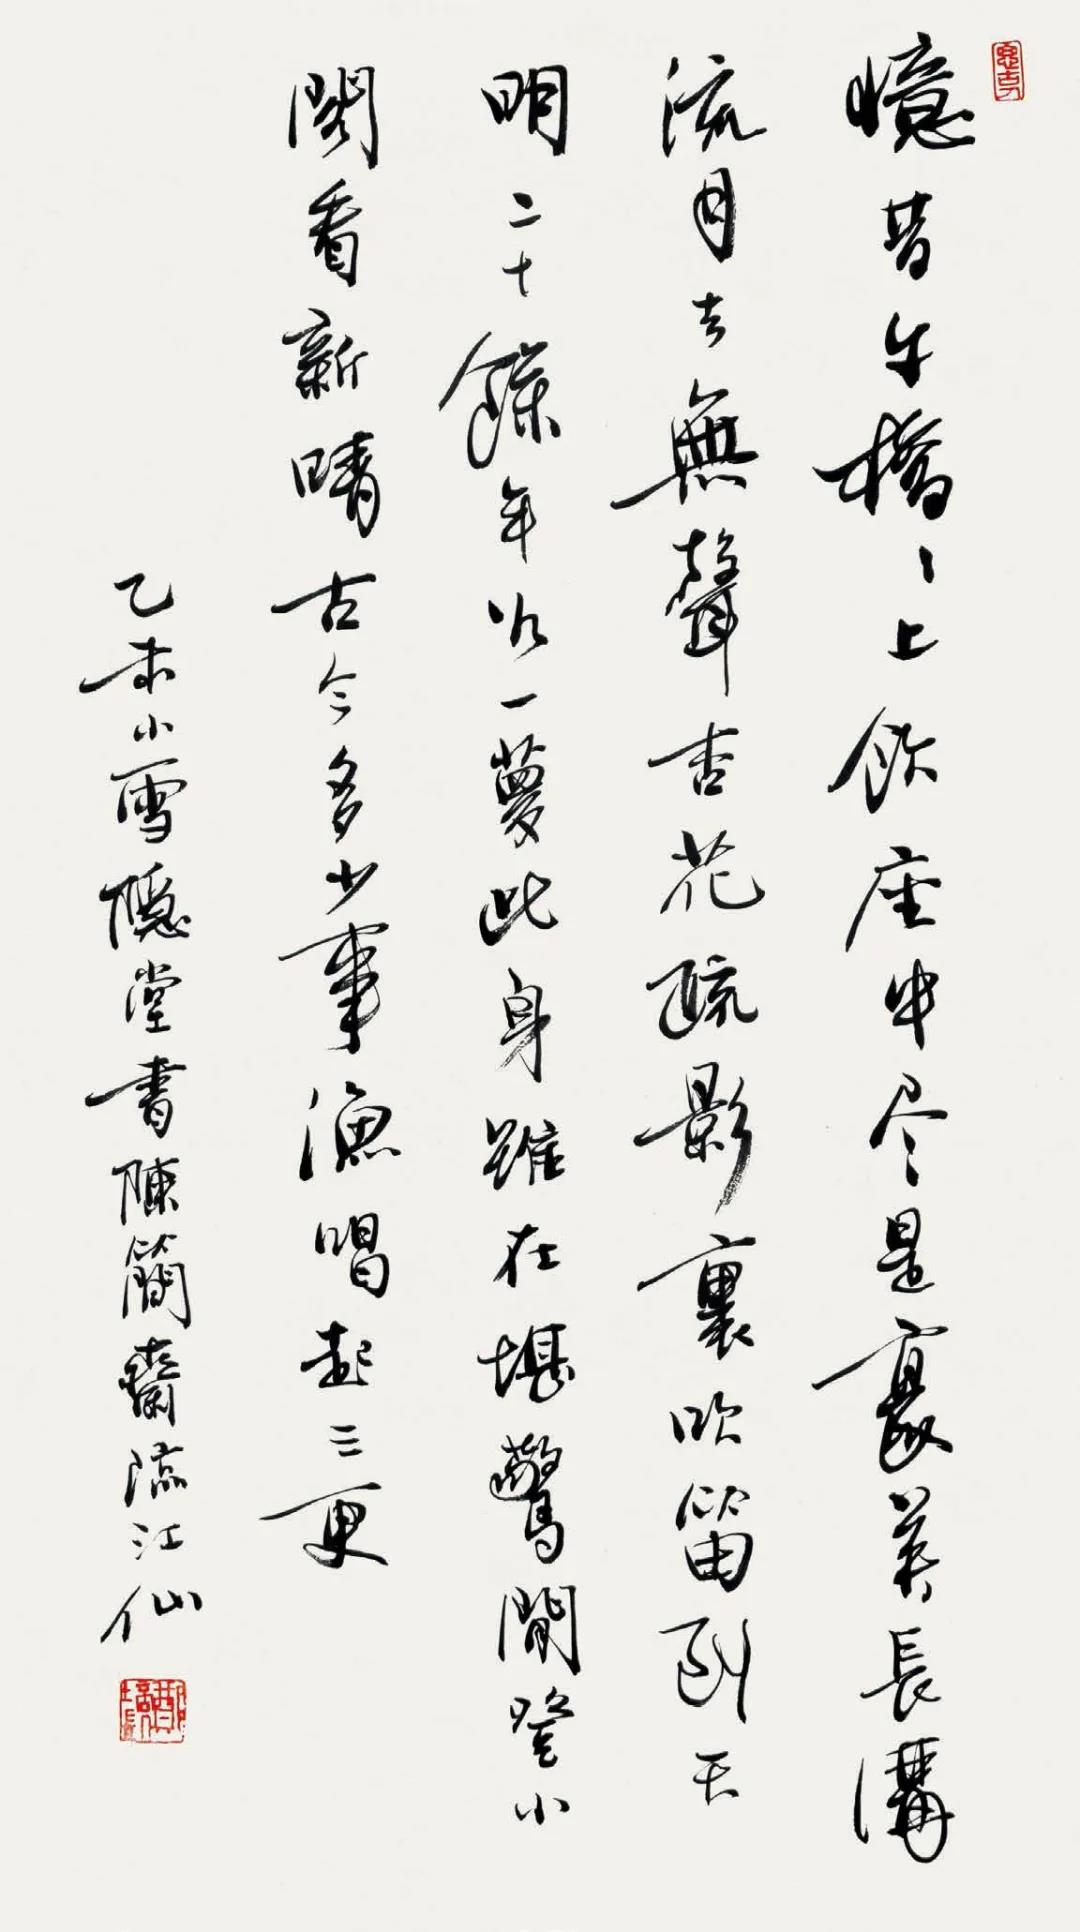 憶昔午橋〻上飲座中尽是豪英長溝
流月去無聲杏花疏影裏吹笛到天
明二十餘年如一夢此身雖在堪驚閒登小
閣看新晴古今多少事漁唱起三更
乙未小雪隱堂書陳簡齋臨江仙